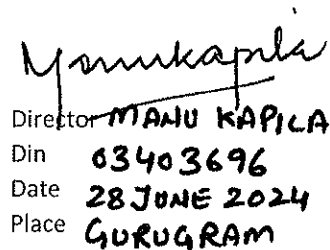 Manukapila
Director MANU KAPILA
Din 03403696
Date 28 JUNE 2024
Place GURUGRAM